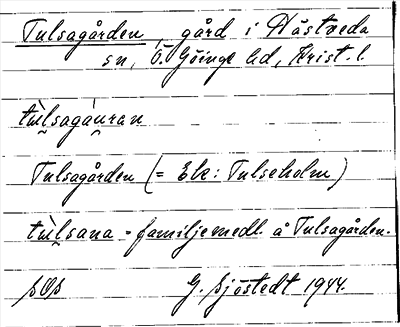 Tulsagården, gård i Hästveda
sn, Ö. Göinge hd, Krist. l.
tùlsagáuran
Tulsagården (= Ek: Tulseholm)
tùlsana = familjemedl. å Tulsagården.
G. Sjöstedt 1944.